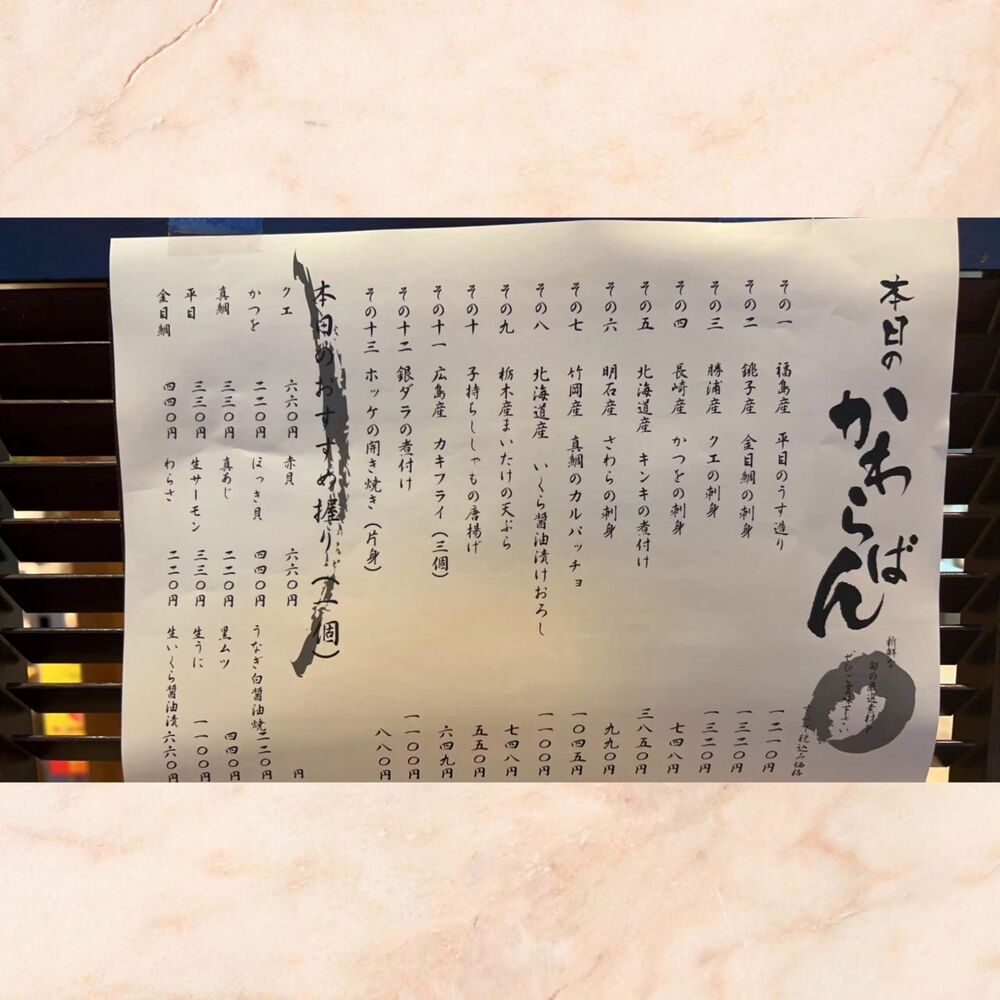 本日の
かわらばん
新鮮な
旬の厳選素材を
ぜひご賞味下さい
税込み価格
その一 福島産 平目のうす造り 一二一〇円
その二 銚子産 金目鯛の刺身 一三二〇円
その三 勝浦産 クエの刺身 一三二〇円
その四 長崎産 かつをの刺身 七四八円
その五 北海道産 キンキの煮付け 三八五〇円
その六 明石産 さわらの刺身 九九〇円
その七 竹岡産 真鯛のカルパッチョ 一〇四五円
その八 北海道産 いくら醤油漬けおろし 一一〇〇円
その九 栃木産まいたけの天ぷら 七四八円
その十 子持ちししゃもの唐揚げ 五五〇円
その十一 広島産 カキフライ（三個） 六四九円
その十二 銀ダラの煮付け 一一〇〇円
その十三 ホッケの開き焼き（片身） 八八〇円
本日のおすすめ握り（一個）
クエ 六六〇円 赤貝 六六〇円 円
かつを 二二〇円 ほっき貝 四四〇円 うなぎ白醤油焼 二二〇円
真鯛 三三〇円 真あじ 二二〇円 黒ムツ 四四〇円
平目 三三〇円 生サーモン 三三〇円 生うに 一一〇〇円
金目鯛 四四〇円 わらさ 二二〇円 生いくら醤油漬 六六〇円